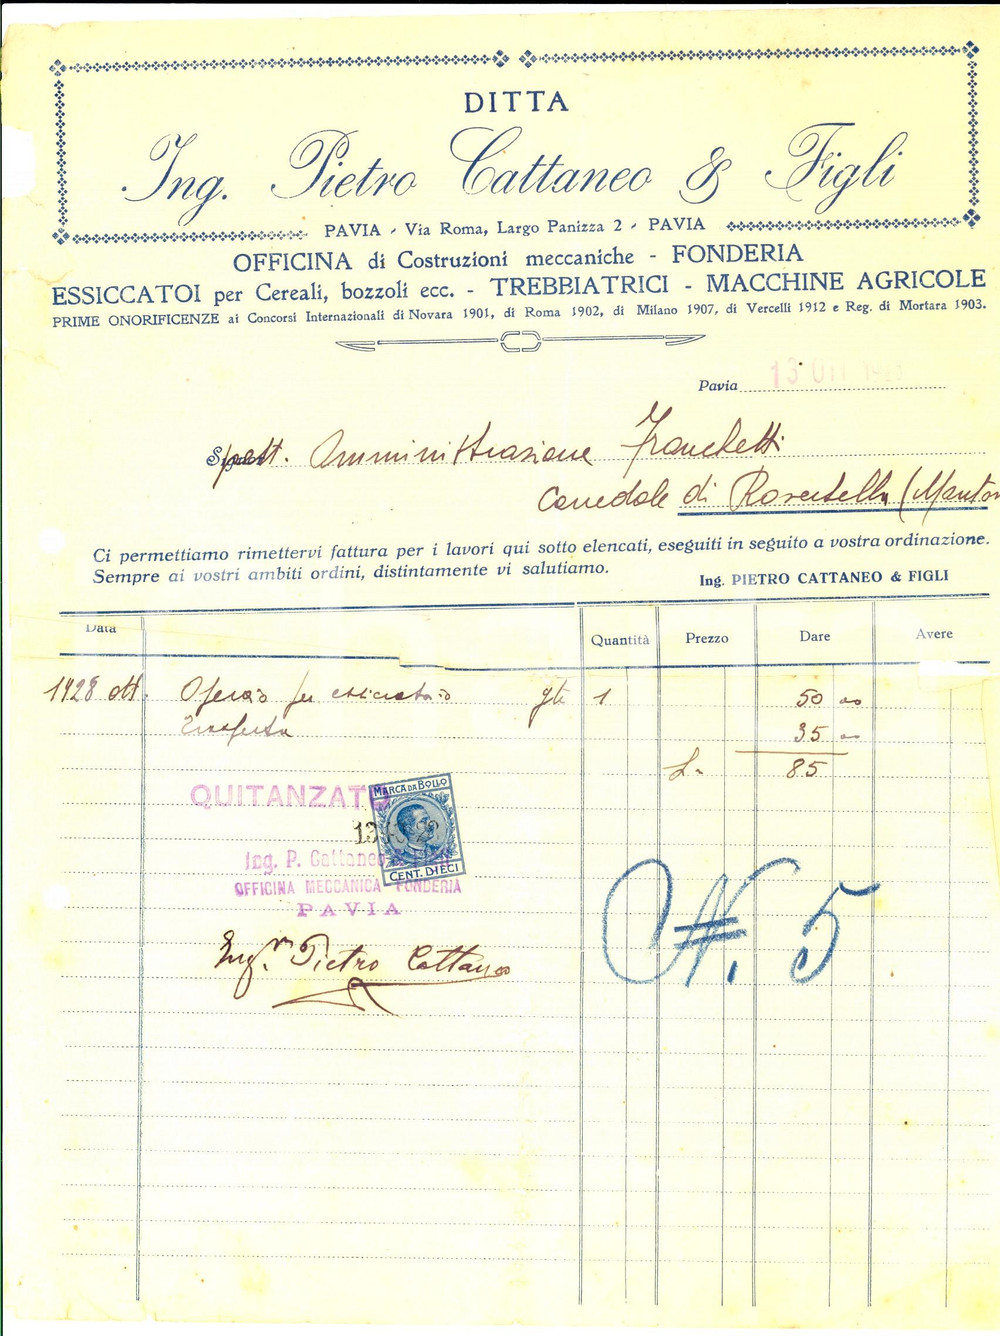 DITTA
Ing. Pietro Cattaneo & Figli
PAVIA - Via Roma, Largo Panizza 2 - PAVIA
OFFICINA di Costruzioni meccaniche - FONDERIA
ESSICCATOI per Cereali, bozzoli ecc. - TREBBIATRICI - MACCHINE AGRICOLE
PRIME ONORIFICENZE ai Concorsi Internazionali di Novara 1901, di Roma 1902, di Milano 1907, di Vercelli 1912 e Reg. di Mortara 1903.
Pavia 13 OTT 1928
Spett. Amministrazione Franchetti
Canedole di Roverbella (Manto
Ci permettiamo rimettervi fattura per i lavori qui sotto elencati, eseguiti in seguito a vostra ordinazione.
Sempre ai vostri ambiti ordini, distintamente vi salutiamo.
Ing. PIETRO CATTANEO & FIGLI
Data Quantità Prezzo Dare Avere
1928 ott. Operaio per essicatoio 1 50
Trasferta 35
L. 85
QUITANZATO
MARCA DA BOLLO
CENT. DIECI
Ing. P. Cattaneo & Figli
OFFICINA MECCANICA FONDERIA
PAVIA
Ing.r Pietro Cattaneo
N. 5